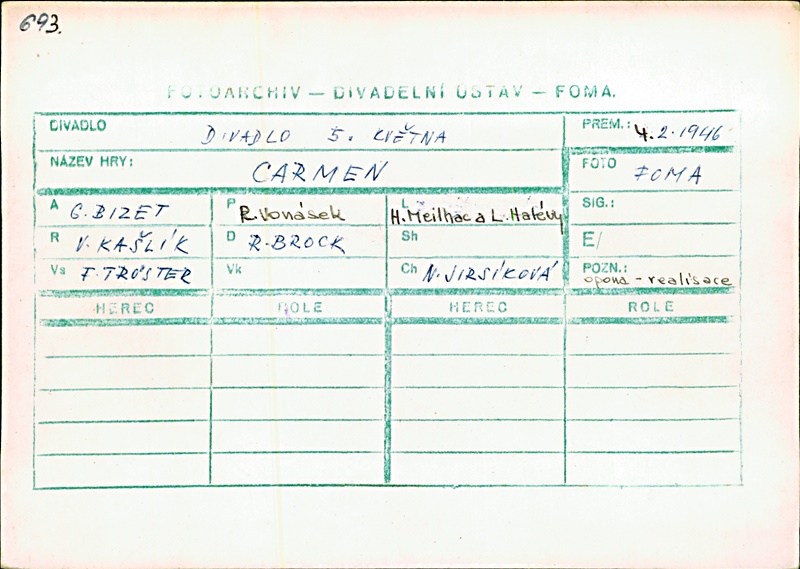 693.
FOTOARCHIV — DIVADELNÍ ÚSTAV — FOMA.
DIVADLO DIVADLO 5. KVĚTNA PREM.: 4.2.1946
NÁZEV HRY: CARMEN FOTO FOMA
A G. BIZET P R. Vonásek L H. Meilhac a L. Halévy SIG.:
R V. KAŠLÍK D R. BROCK Sh E/
Vs F. TRÖSTER Vk Ch N. JIRSÍKOVÁ POZN.: opona - realisace
HEREC ROLE HEREC ROLE